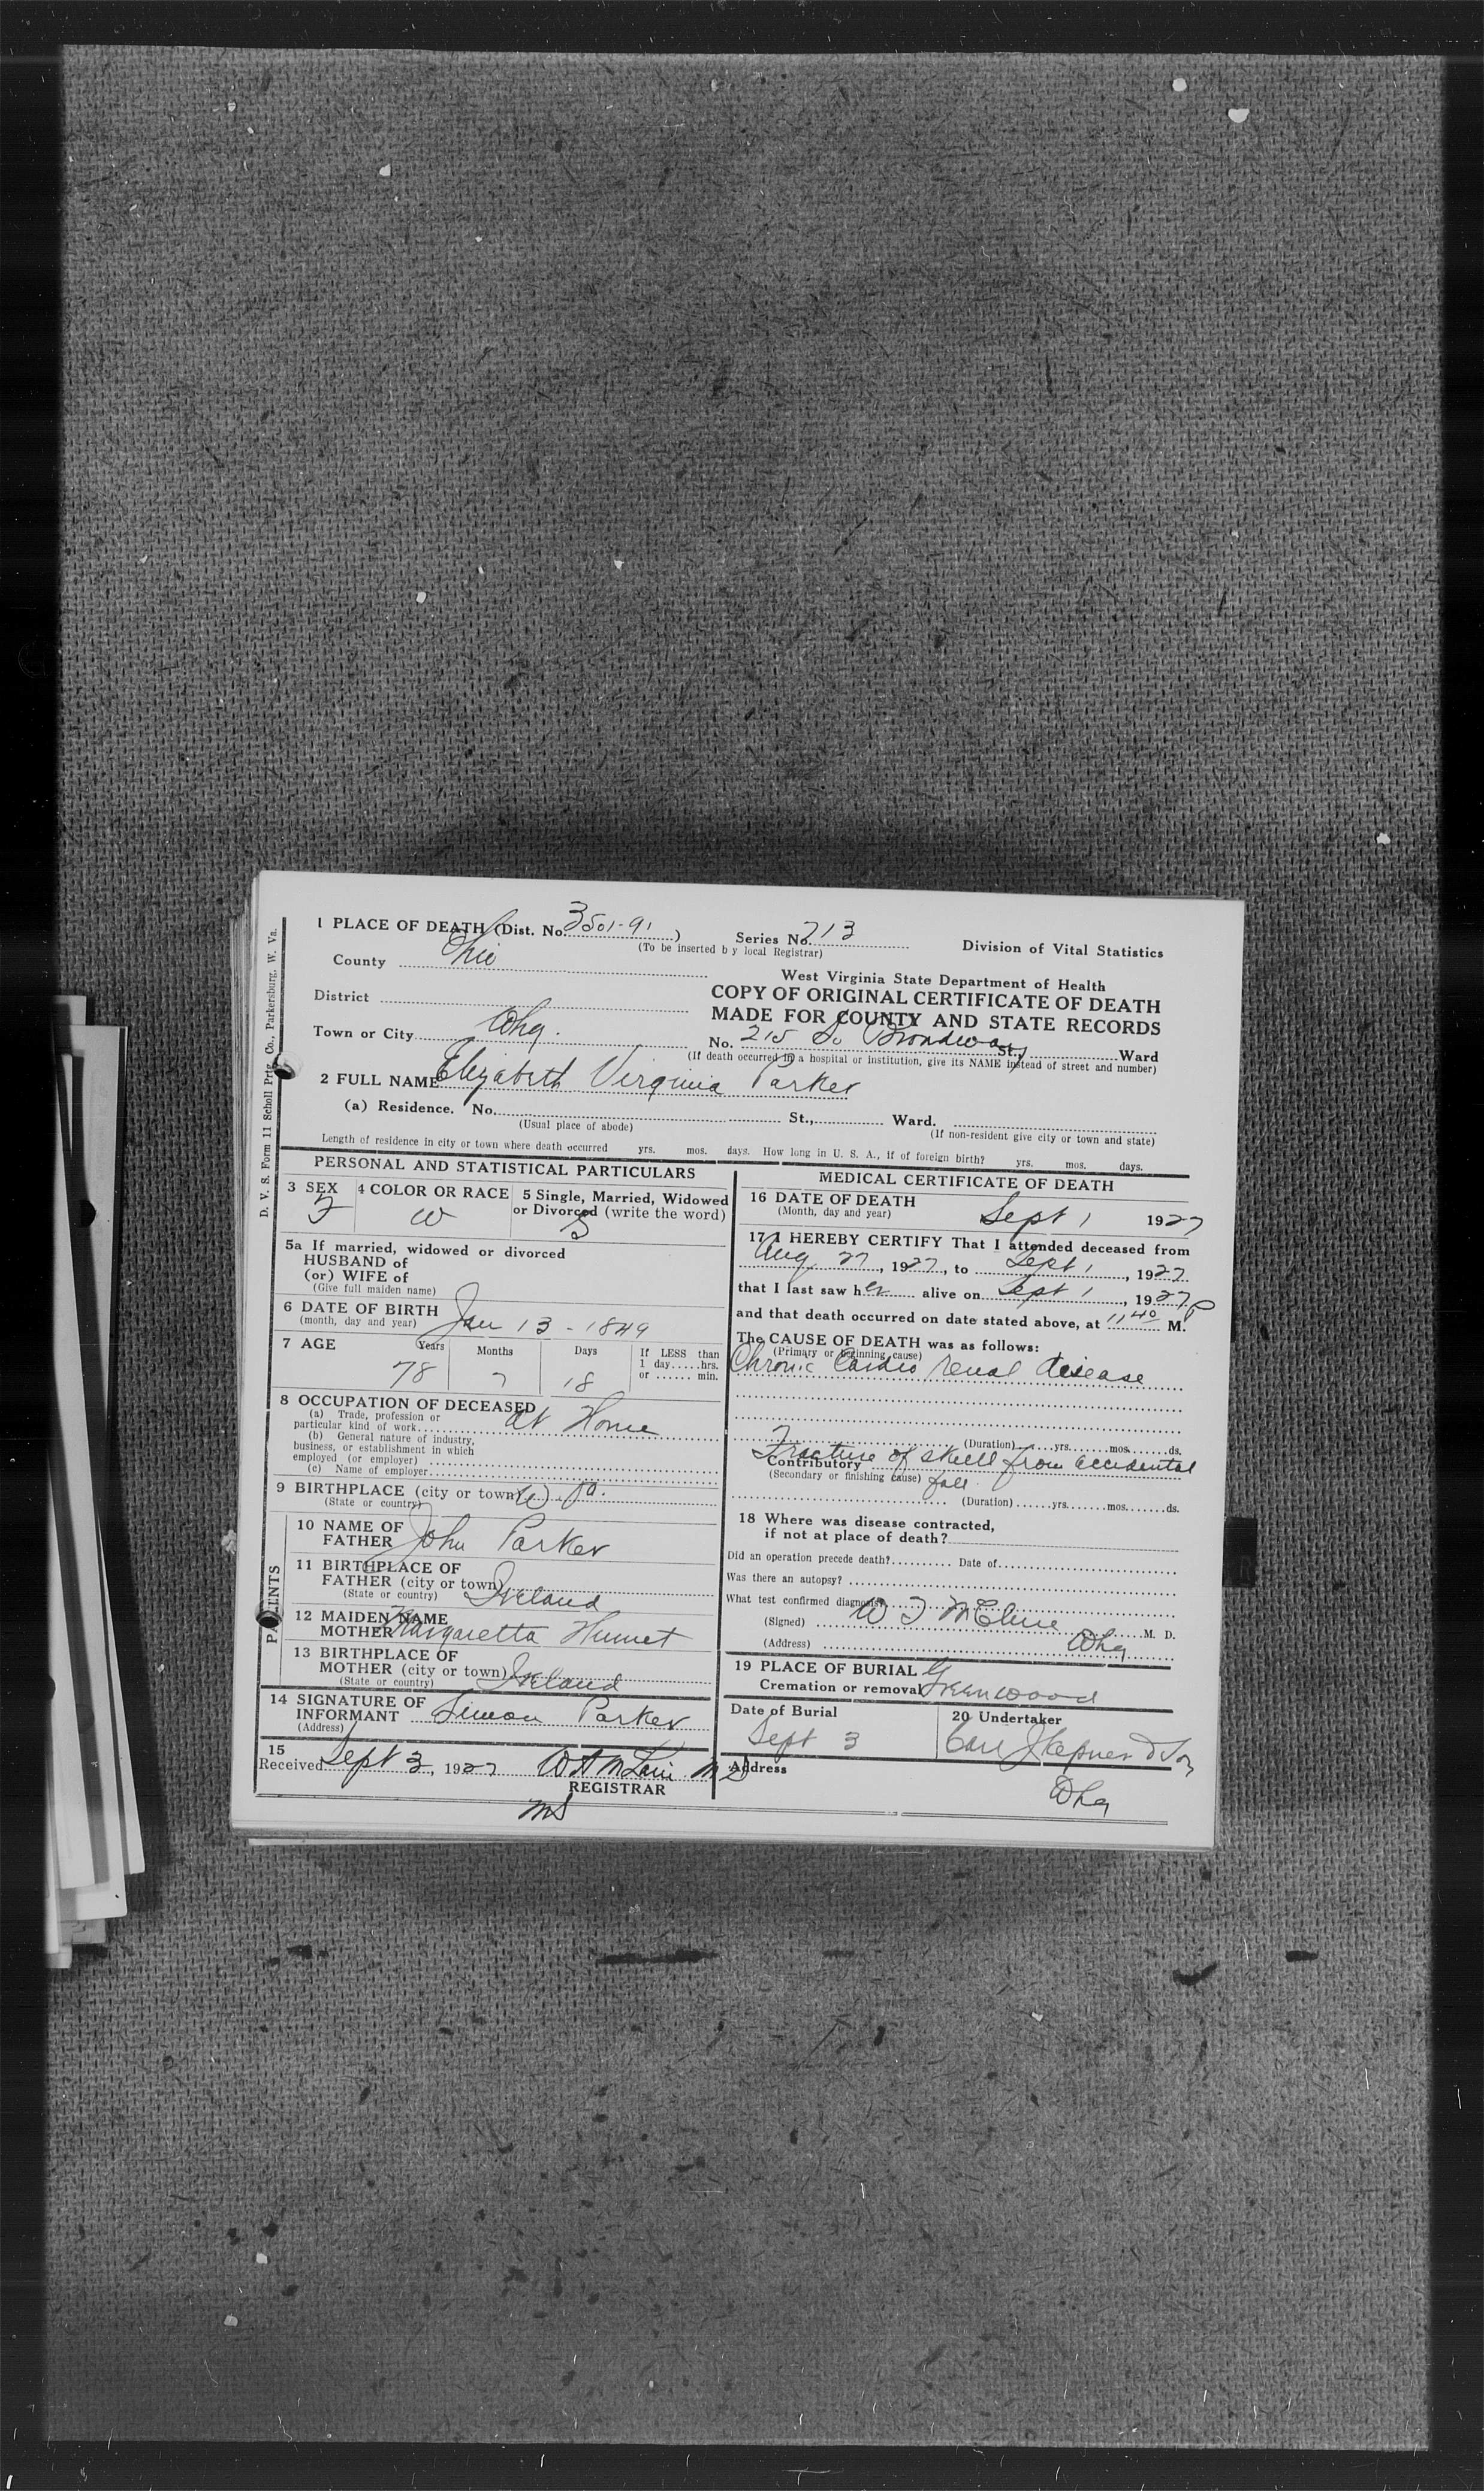 D. V. S. Form 11 Scholl Prtg. Co., Parkersburg, W. Va.
1 PLACE OF DEATH (Dist. No. 3501-91)
Series No. 213
(To be inserted by local Registrar)
Division of Vital Statistics
County Ohio
West Virginia State Department of Health
COPY OF ORIGINAL CERTIFICATE OF DEATH
MADE FOR COUNTY AND STATE RECORDS
District
Town or City Whg.
No. 215 So Broadway St., Ward
(If death occurred in a hospital or institution, give its NAME instead of street and number)
2 FULL NAME Elizabeth Virginia Parker
(a) Residence. No. St., Ward.
(Usual place of abode)
(If non-resident give city or town and state)
Length of residence in city or town where death occurred yrs. mos. days. How long in U. S. A., if of foreign birth? yrs. mos. days.
PERSONAL AND STATISTICAL PARTICULARS
3 SEX F
4 COLOR OR RACE W
5 Single, Married, Widowed
or Divorced (write the word) S
5a If married, widowed or divorced
HUSBAND of
(or) WIFE of
(Give full maiden name)
6 DATE OF BIRTH Jan 13 - 1849
(month, day and year)
7 AGE Years 78 Months 7 Days 18
If LESS than
1 day.....hrs.
or ...... min.
8 OCCUPATION OF DECEASED At Home
(a) Trade, profession or
particular kind of work
(b) General nature of industry,
business, or establishment in which
employed (or employer)
(c) Name of employer
9 BIRTHPLACE (city or town)
(State or country)
PARENTS
10 NAME OF
FATHER John Parker
11 BIRTHPLACE OF
FATHER (city or town) Ireland
(State or country)
12 MAIDEN NAME
MOTHER Margaretta
13 BIRTHPLACE OF
MOTHER (city or town) Ireland
(State or country)
14 SIGNATURE OF
INFORMANT Simon Parker
(Address)
15
Received Sept 3, 1927 M D
REGISTRAR
MEDICAL CERTIFICATE OF DEATH
16 DATE OF DEATH Sept 1 1927
(Month, day and year)
17 I HEREBY CERTIFY That I attended deceased from
Aug 27, 1927, to Sept 1, 1927
that I last saw her alive on Sept 1, 1927
and that death occurred on date stated above, at 11 40 P M.
The CAUSE OF DEATH was as follows:
(Primary or beginning cause)
Chronic Cardio renal disease
(Duration) yrs. mos. ds.
Fracture of skull from accidental
Contributory
(Secondary or finishing cause) fall
(Duration) yrs. mos. ds.
18 Where was disease contracted,
if not at place of death?
Did an operation precede death? Date of
Was there an autopsy?
What test confirmed diagnosis?
(Signed) M. D.
(Address) Whg
19 PLACE OF BURIAL
Cremation or removal Greenwood
Date of Burial
Sept 3
20 Undertaker
Address
Whg